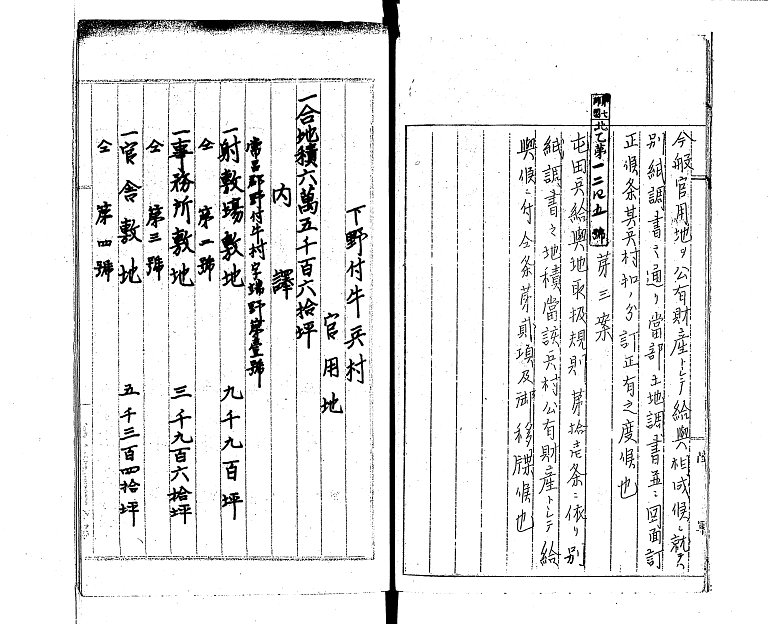 今般官用地ヲ公有財産トシテ給與相成候ニ就テハ
別紙調書之通リ當部土地調書並ニ図面訂
正候条其兵村扣ノ分訂正有之度候也
北乙第一二四五號
第三案
屯田兵給與地取扱規則第拾壱条ニ依リ別
紙調書之地積當該兵村公有財産トシテ給
與候ニ付仝条第貳項及御移牒候也
陸軍
下野付牛兵村
官用地
一合地積六萬五千百六拾坪
内譯
常呂郡野付牛村字端野第壹號
一射敷場敷地 九千九百坪
仝 第一號
一事務所敷地 三千九百六拾坪
仝 第三號
一官舎敷地 五千三百四拾坪
仝 第四號